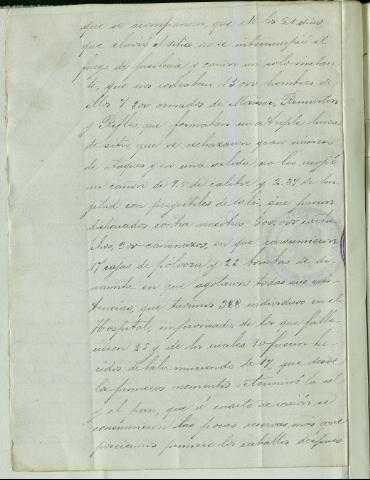 que se acompañan, que de los 51 dias
que duró el sitio no se interrumpió el
fuego de fusilería y cañon un solo instan-
te, que nos rodeaban 15.000 hombres de
ellos 7.200 armados de Mauser, Remington
y Rifles que formaban una triple linea
de sitio, que se rechazaron gran numero
de ataques y en una salida se les cogió
un cañon de 9.5 de calibre y 2.37 de lon-
gitud con proyectiles de que fueron
disparados contra nosotros 500.000 cartu-
chos, 200 cañonazos, en que consumieron
17 cajas de pólvora y 22 bombas de di-
namita en que agotaron todas sus exis-
tencias, que tuvimos 388 individuos en el
Hospital, enfermedades de los que falle-
cieron 25 y de los cuales 20 fueron he-
ridos de bala muriendo de 17, que desde
los primeros momentos se terminó la sal
y el pan, que á cuarto de racion se
consumieron las pocas reservas, nos
primero los caballos despues